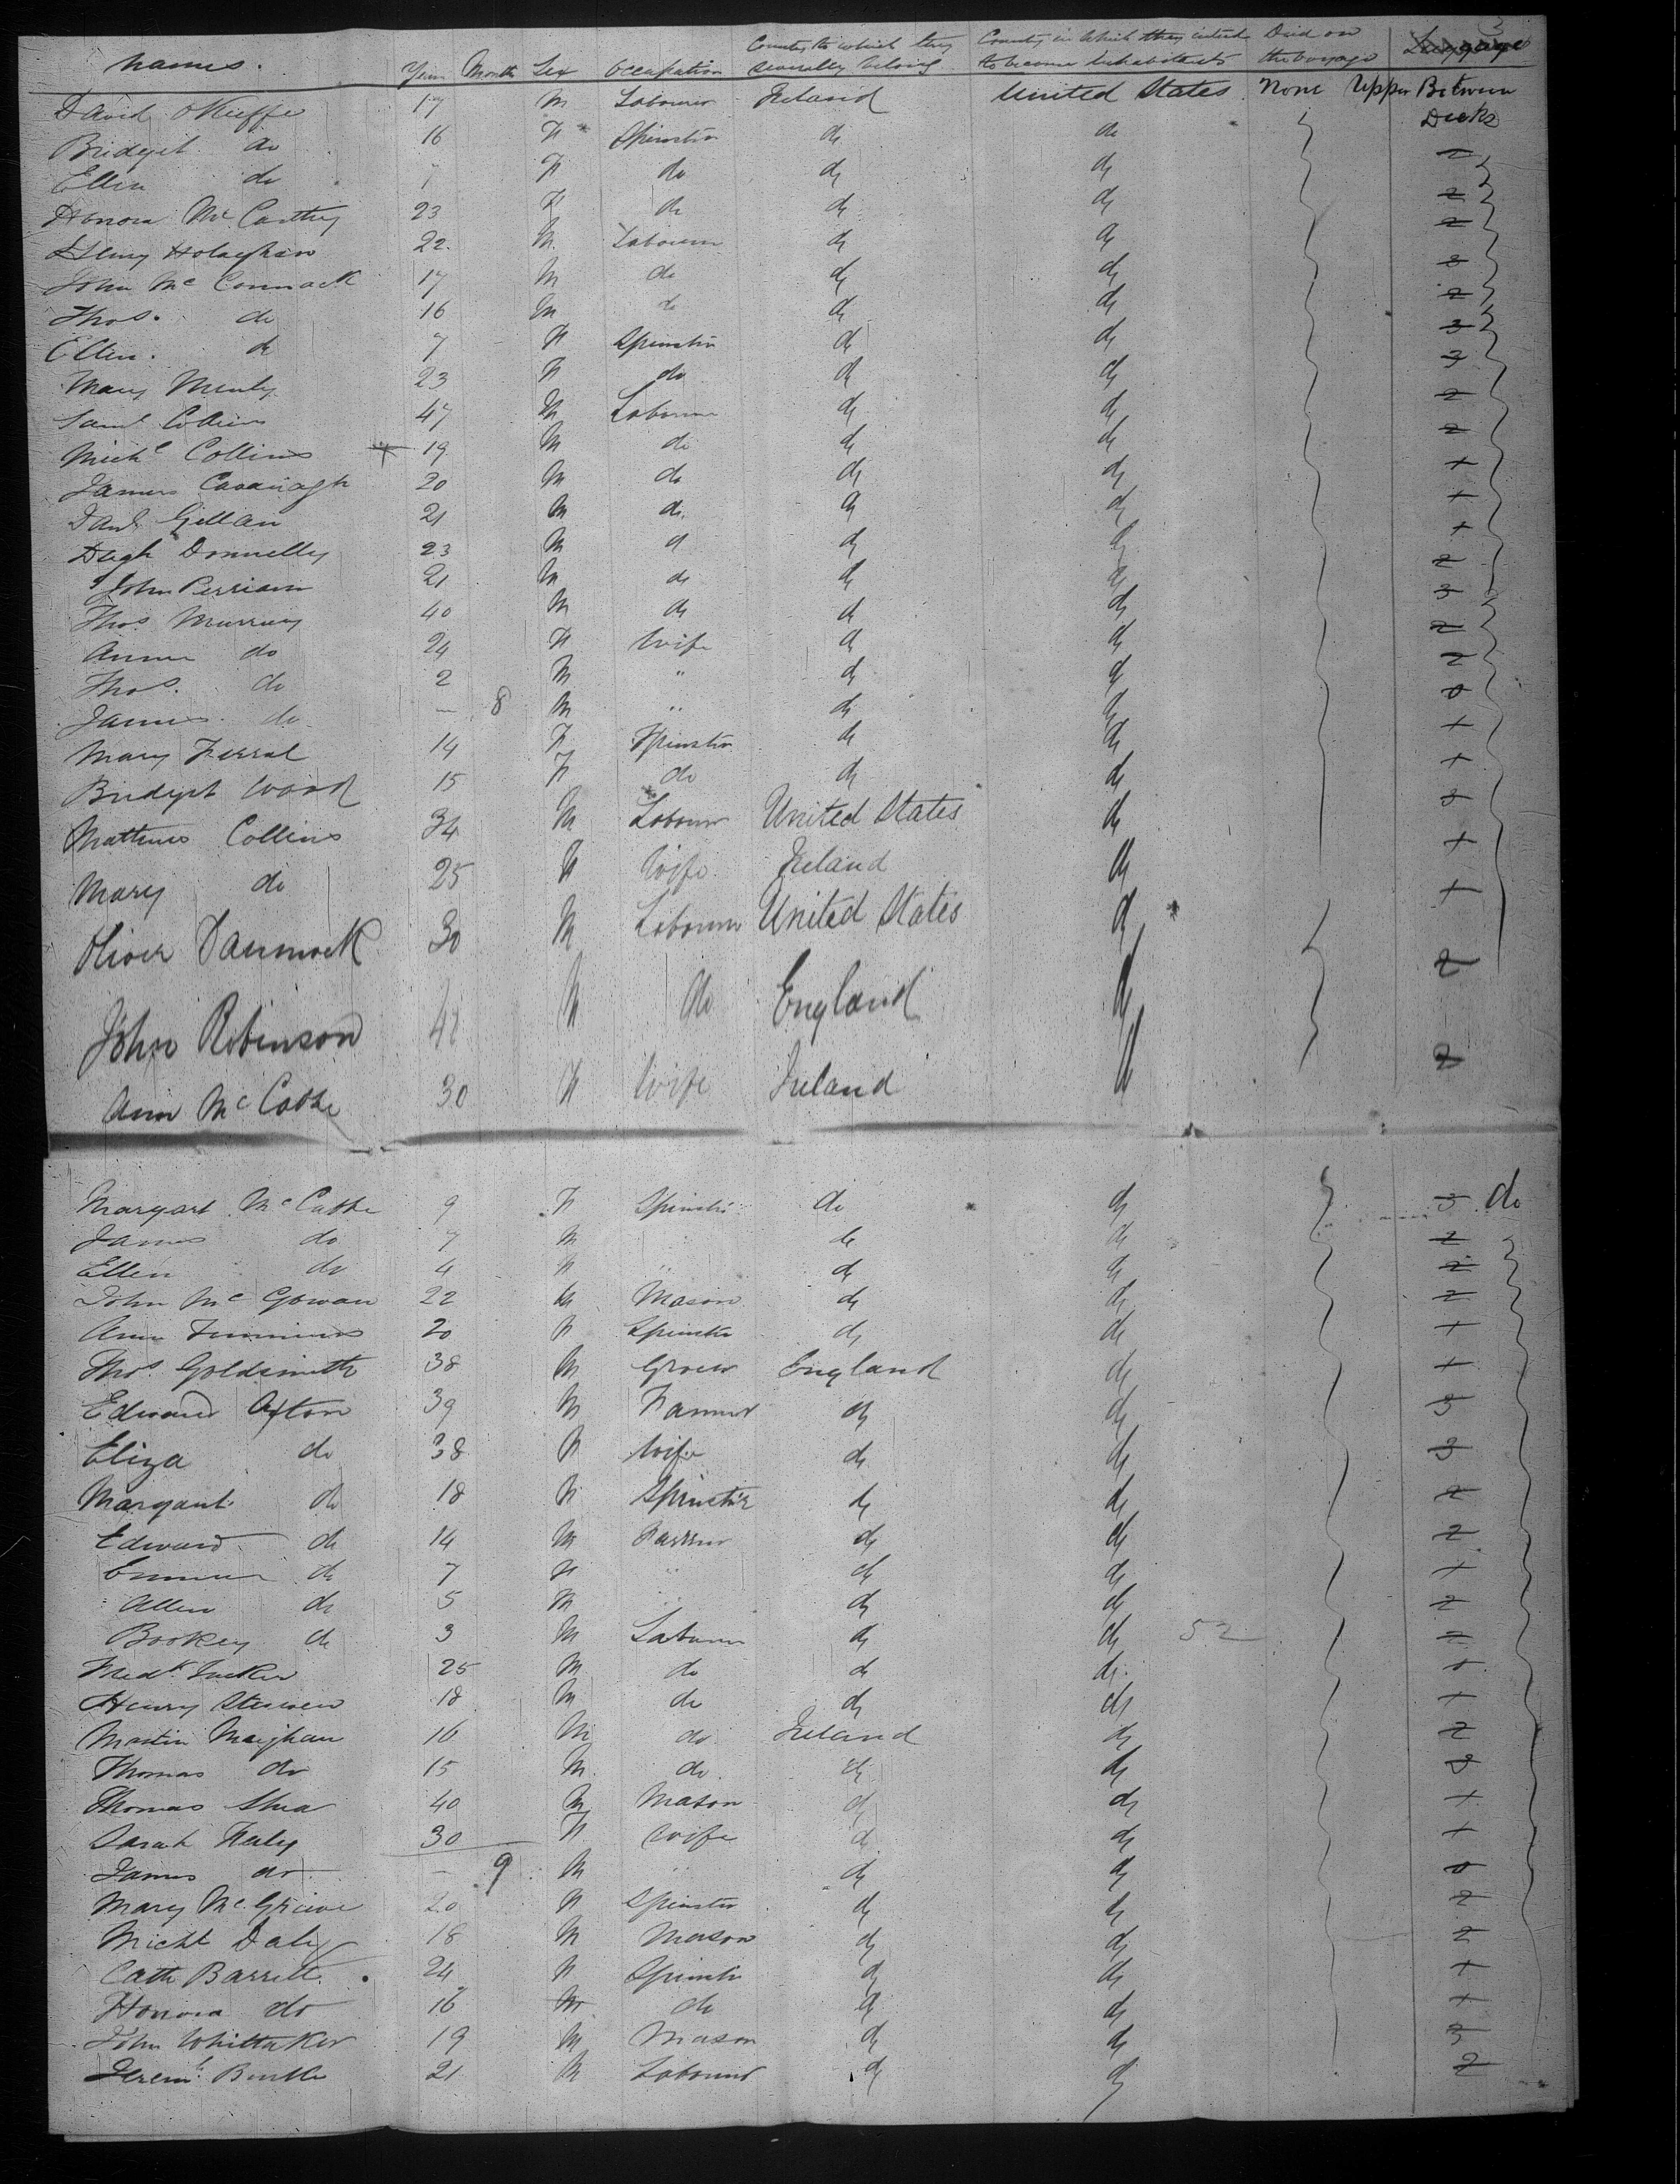 3
Names. Years Months Sex Occupation Country to which they severally belong Country in which they intend to become inhabitants Died on the voyage Luggage
David OKeiffe 17 M Labourer Ireland United States None Upper Between Decks
Bridget do 16 F Spinster do do 2
Ellen do F do do do 2
Honora McCarthy 23 F do do do 2
Henry 22 M Labourer do do 3
John McCormack 17 M do do do 2
Thos. do 16 M do do do 3
Ellen. do 7 F Spinster do do 3
Mary 23 F do do do 2
Saml Collins 47 M Labourer do do 2
Michl Collins 19 M do do do +
James Cavanagh 20 M do do do +
Danl Gillan 21 M do do do +
Hugh Donnelly 23 M do do do 2
John 21 M do do do 3
Thos Murray 40 M do do do 2
Anne do 24 F Wife do do 2
Thos. do 2 M " do do 0
James do — 8 M " do do +
Mary Ferral 14 F Spinster do do +
Bridget Ward 15 F do do do 3
Matthew Collins 34 M Labourer United States do +
Mary do 25 F Wife Ireland do +
Oliver 30 M Labourer United States do 2
John Robinson M do England do 2
Ann McCabe 30 F Wife Ireland do
Margaret McCabe 9 F Spinster do do 3 do
James do 7 M do do 2
Ellen do 4 F " do do 2
John McGowan 22 M Mason do do 2
Ann Timmins 20 F Spinster do do +
Thos. Goldsmith 38 M Grocer England do +
Edward Axton 39 M Farmer do do 3
Eliza do 38 F Wife do do 3
Margaret do 18 F Spinster do do 2
Edward do 14 M Farmer do do 2
Emma do 7 F " do do +
Allen do 5 M do do 2
Bookey do 3 M Labourer do do 52 2
Fredk Tucker 25 M do do do 0
Henry 18 M do do do +
Martin Maighan 16 M do Ireland do 2
Thomas do 15 M do do do 3
Thomas Shea 40 M Mason do do +
Sarah Healy 30 F Wife do do +
James do — 9 M " do do 0
Mary Mc 20 F Spinster do do 2
Michl Daly 18 M Mason do do 2
Cath Barrett 24 F Spinster do do +
Honora do 16 do do do +
John Whittaker 19 M Mason do do 3
Jeremh Burke 21 M Labourer do do 2